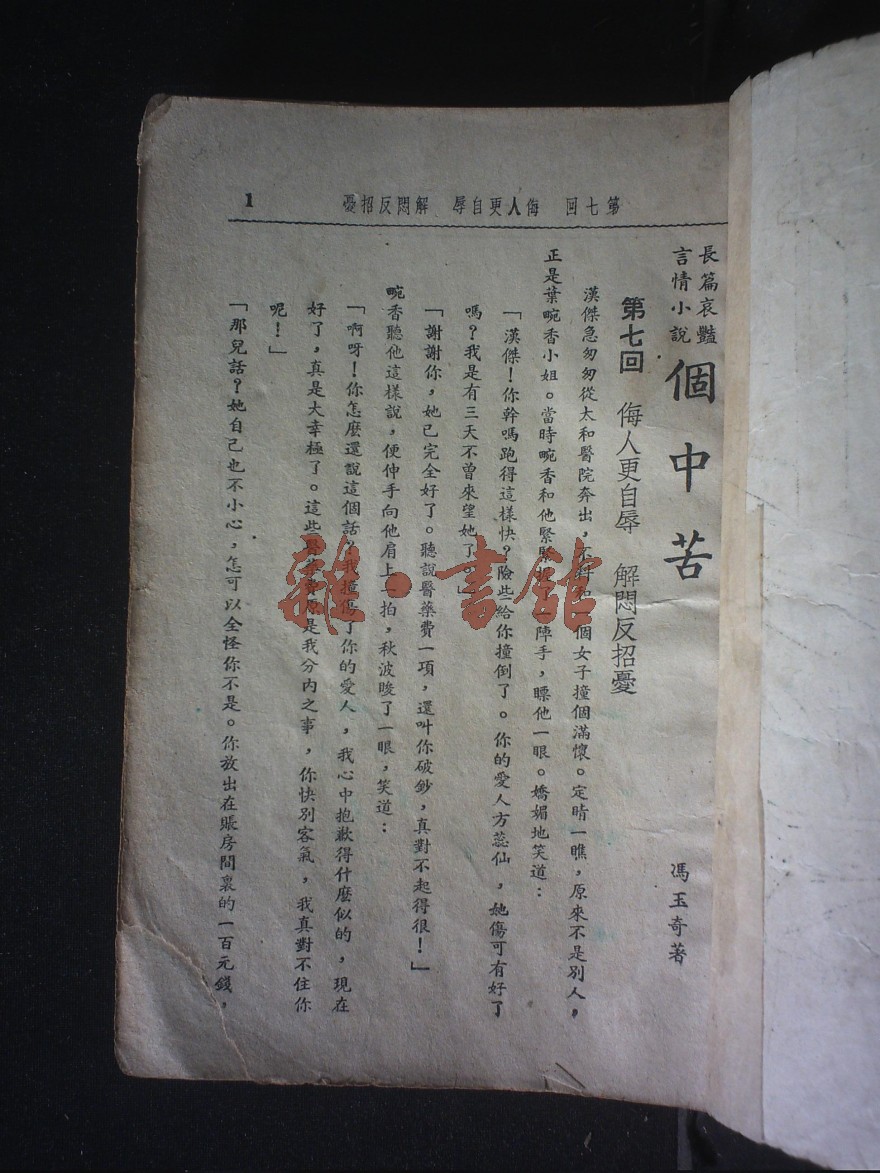 第七回 侮人更自辱 解悶反招憂
1
長篇哀豔
言情小說
個中苦
馮玉奇著
第七回 侮人更自辱 解悶反招憂
漢傑急匆匆從太和醫院奔出，不料和一個女子撞個滿懷。定晴一瞧，原來不是別人，
正是葉畹香小姐。當時畹香和他緊緊 一陣手，瞟他一眼。嬌媚地笑道：
「漢傑！你幹嗎跑得這樣快？險些給你撞倒了。你的愛人方蕊仙，她傷可有好了
嗎？我是有三天不曾來望她了。」
「謝謝你，她已完全好了。聽說醫藥費一項，還叫你破鈔，真對不起得很！」
畹香聽他這樣說，便伸手向他肩上一拍，秋波睃了一眼，笑道：
「啊呀！你怎麼還說這個話？我撞傷了你的愛人，我心中抱歉得什麼似的，現在
好了，真是大幸極了。這些醫藥費原是我分內之事，你快別客氣，我真對不住你
呢！」
「那兒話？她自己也不小心，怎可以全怪你不是。你放出在賬房間裏的一百元錢，
雜·書館